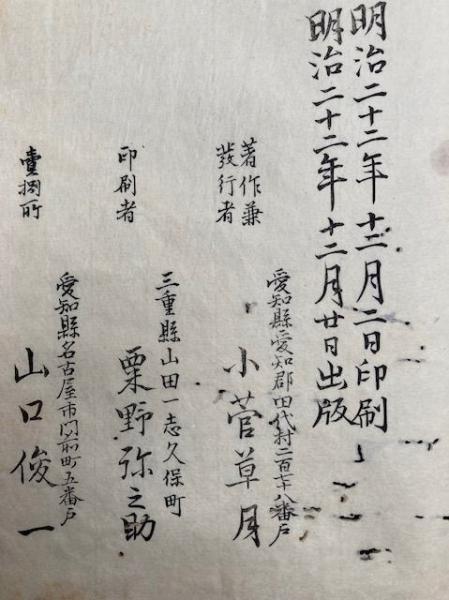 明治二十二年十二月二日印刷
明治二十二年十二月廿日出版
著作兼
發行者
愛知縣愛知郡田代村二百七十八番戸
小菅草月
印刷者
三重縣山田一志久保町
粟野弥之助
賣捌所
愛知縣名古屋市門前町五番戸
山口俊一